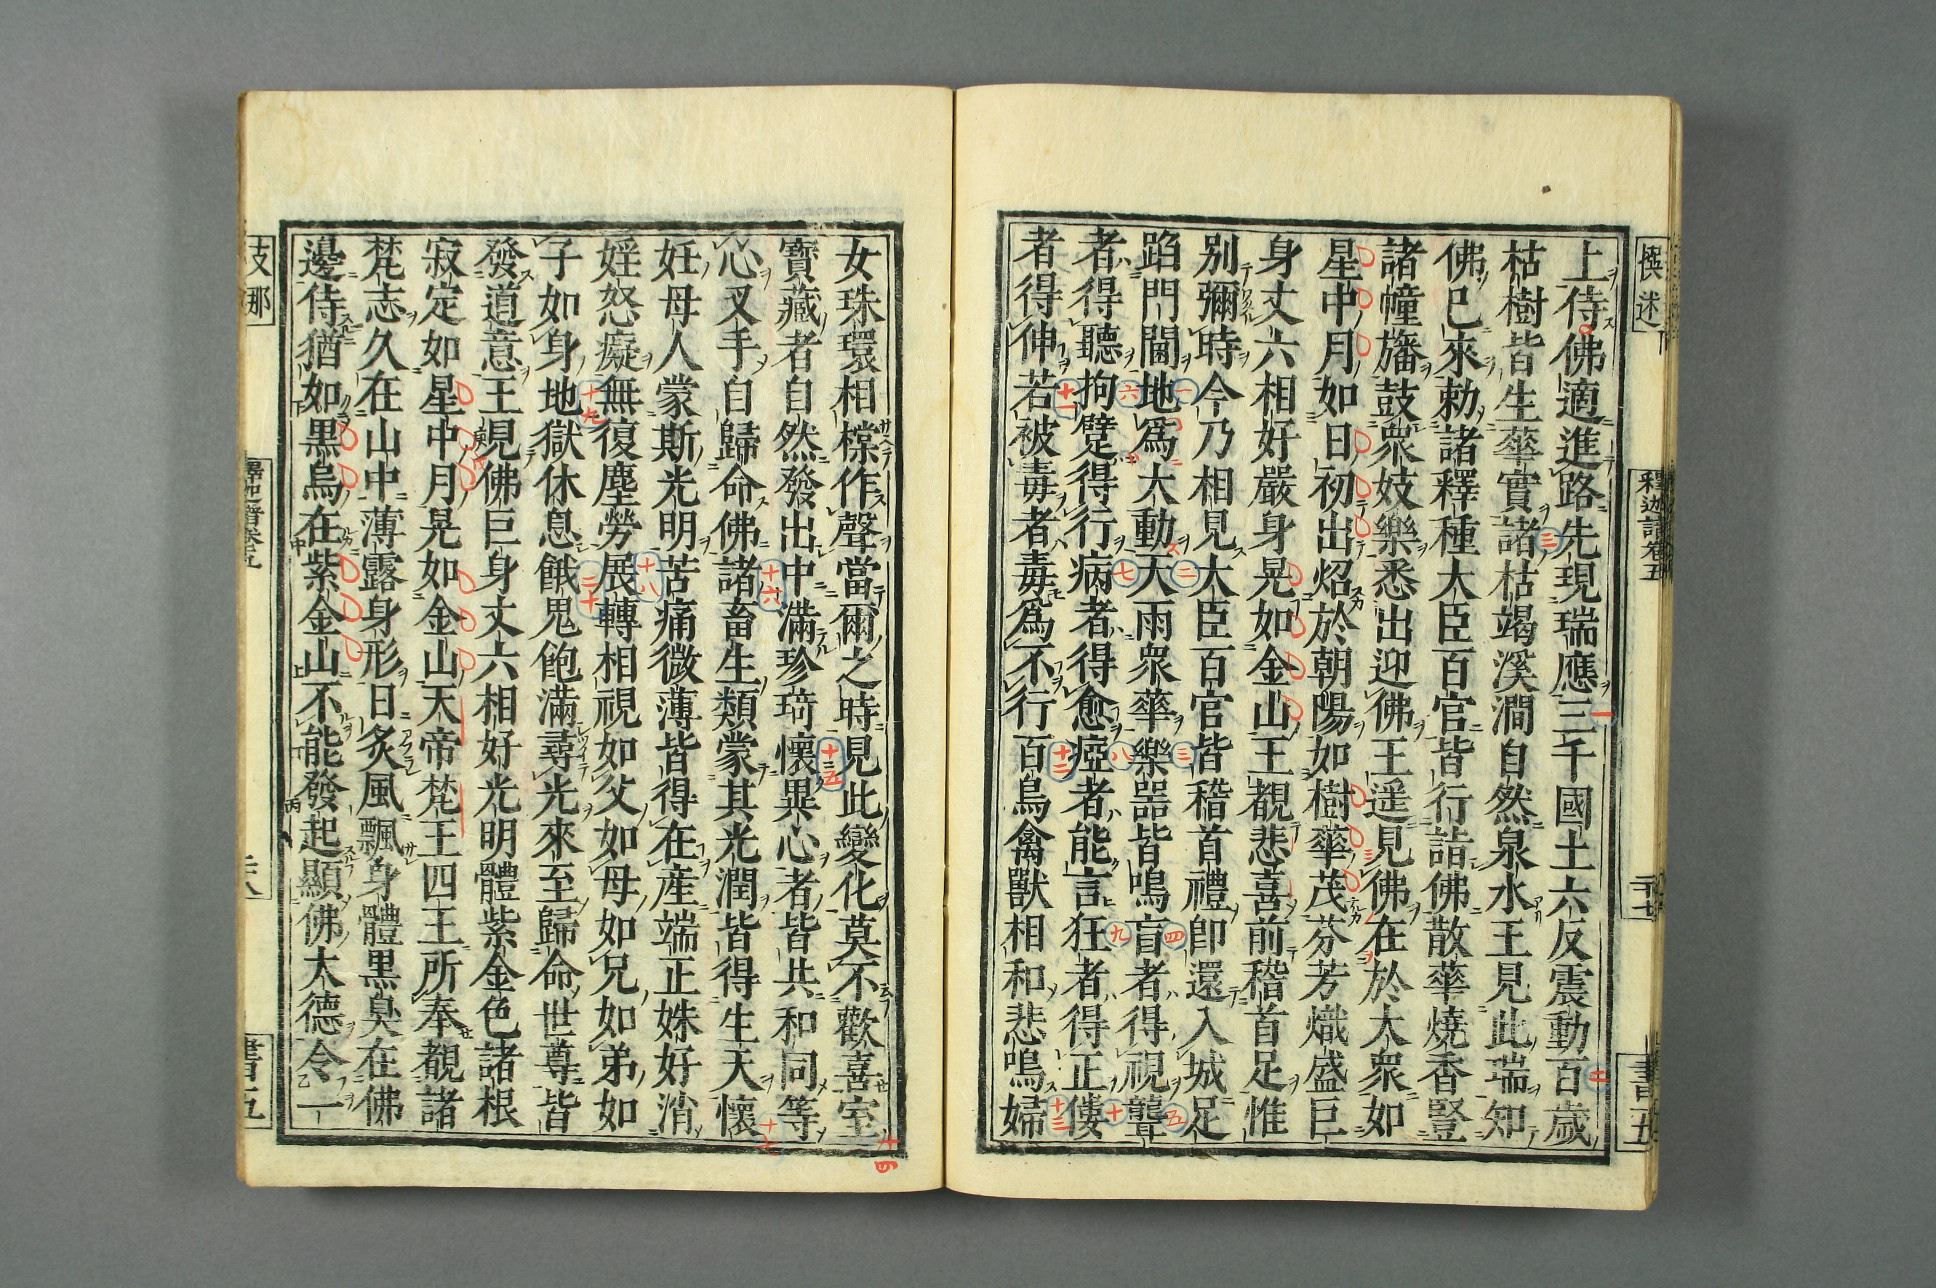 撰述
釋迦譜卷五
書五
上侍佛適進路先現瑞應三千國土六反震動百歲
枯樹皆生華實諸枯竭溪澗自然泉水王見此瑞知
佛已來勅諸釋種大臣百官皆行詣佛散華燒香豎
諸幢旛鼓衆妓樂悉出迎佛王遥見佛在於大衆如
星中月如日初出炤於朝陽如樹華茂芬芳熾盛巨
身丈六相好嚴身晃如金山王覩悲喜前稽首足惟
別彌時今乃相見大臣百官皆稽首禮即還入城足
蹈門閫地爲大動天雨衆華樂器皆鳴盲者得視聾
者得聽拘躄得行病者得愈瘂者能言狂者得正僂
者得伸若被毒者毒爲不行百鳥禽獸相和悲鳴婦
女珠環相樘作聲當爾之時見此變化莫不歡喜室
寶藏者自然發出中滿珍琦懷異心者皆共和同等
心叉手自歸命佛諸畜生類蒙其光潤皆得生天懷
妊母人蒙斯光明苦痛微薄皆得在産端正姝好消
婬怒癡無復塵勞展轉相視如父如母如兄如弟如
子如身地獄休息餓鬼飽滿尋光來至歸命世尊皆
發道意王見佛巨身丈六相好光明體紫金色諸根
寂定如星中月晃如金山天帝梵王四王所奉覩諸
梵志久在山中薄露身形日炙風飄身體黒臭在佛
邊侍猶如黒烏在紫金山不能發起顯佛大德令一
支那
釋迦譜卷五
書五